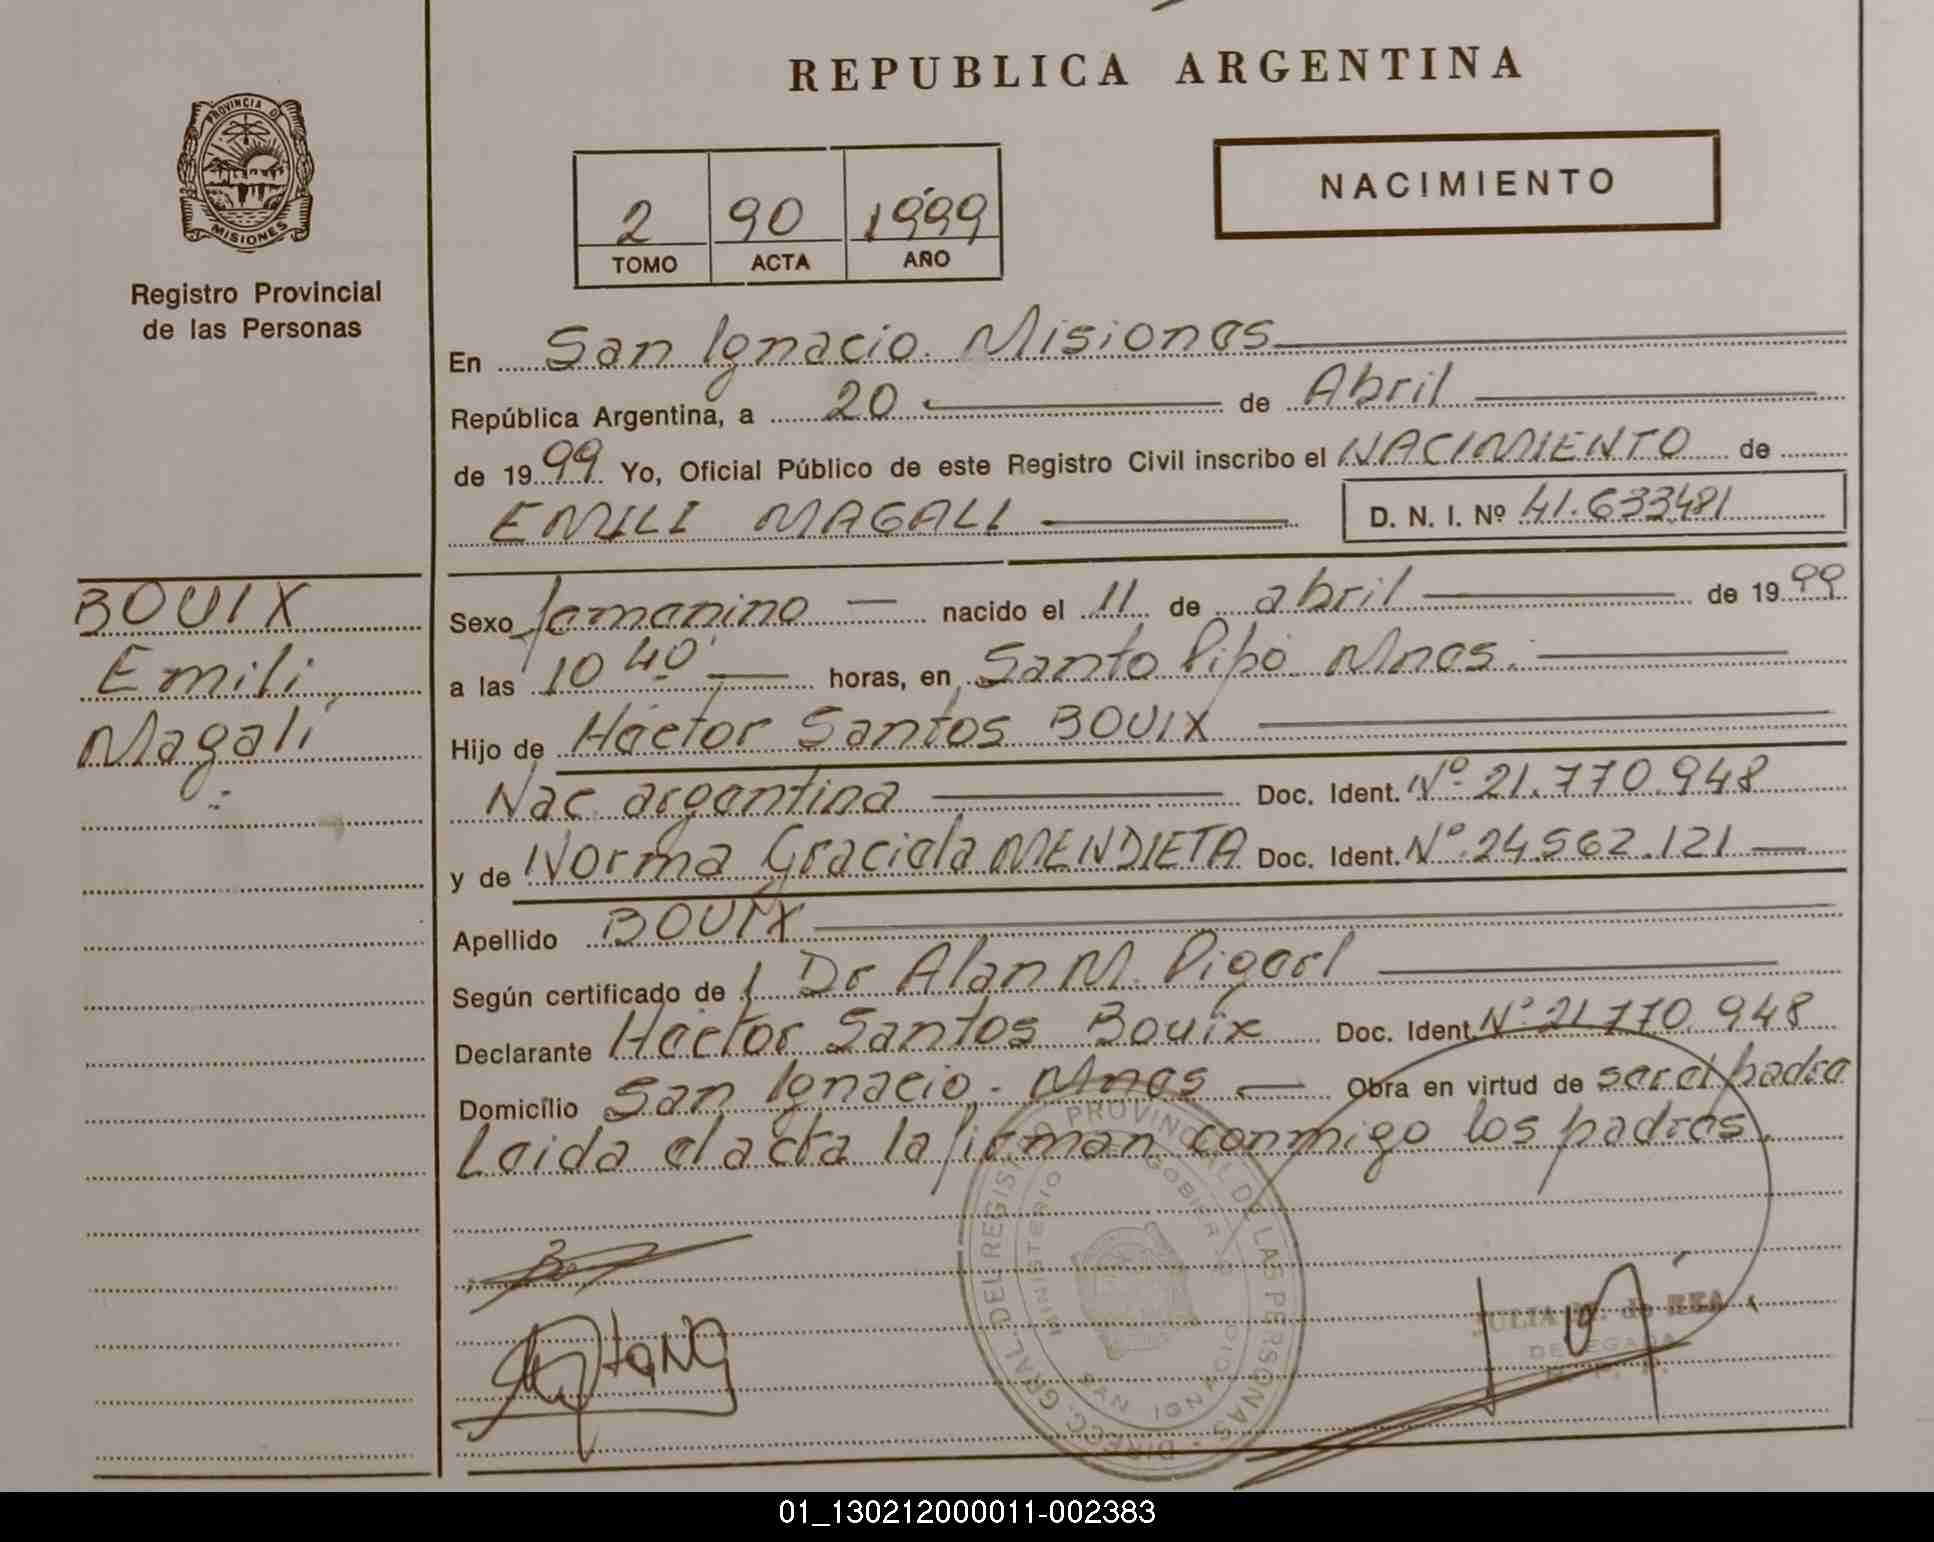 REPUBLICA ARGENTINA
PROVINCIA D
MISIONES
Registro Provincial
de las Personas
2 90 1999
TOMO ACTA AÑO
NACIMIENTO
En San Ignacio. Misiones
República Argentina, a 20 de Abril
de 1999 Yo, Oficial Público de este Registro Civil inscribo el NACIMIENTO de
EMILI MAGALI D. N. I. Nº 41.633481
BOUIX
Emili
Magalí
Sexo femenino nacido el 11 de abril de 1999
a las 10 40' horas, en Santo Pipó. Mnes.
Hijo de Héctor Santos BOUIX
Nac. argentina Doc. Ident. Nº 21.770.948
y de Norma Graciela MENDIETA Doc. Ident. Nº 24.562.121
Apellido BOUIX
Según certificado de Dr Alan M.
Declarante Héctor Santos Bouix Doc. Ident. Nº 21 770. 948
Domicilio San Ignacio - Mnes Obra en virtud de ser el padre
Leida el acta la firman conmigo los padres.
DIRECC. GRAL. DEL REGISTRO PROVINCIAL DE LAS PERSONAS
MINISTERIO GOBIERNO
SAN IGNACIO
JULIA de REA
DELEGADA
01_130212000011-002383